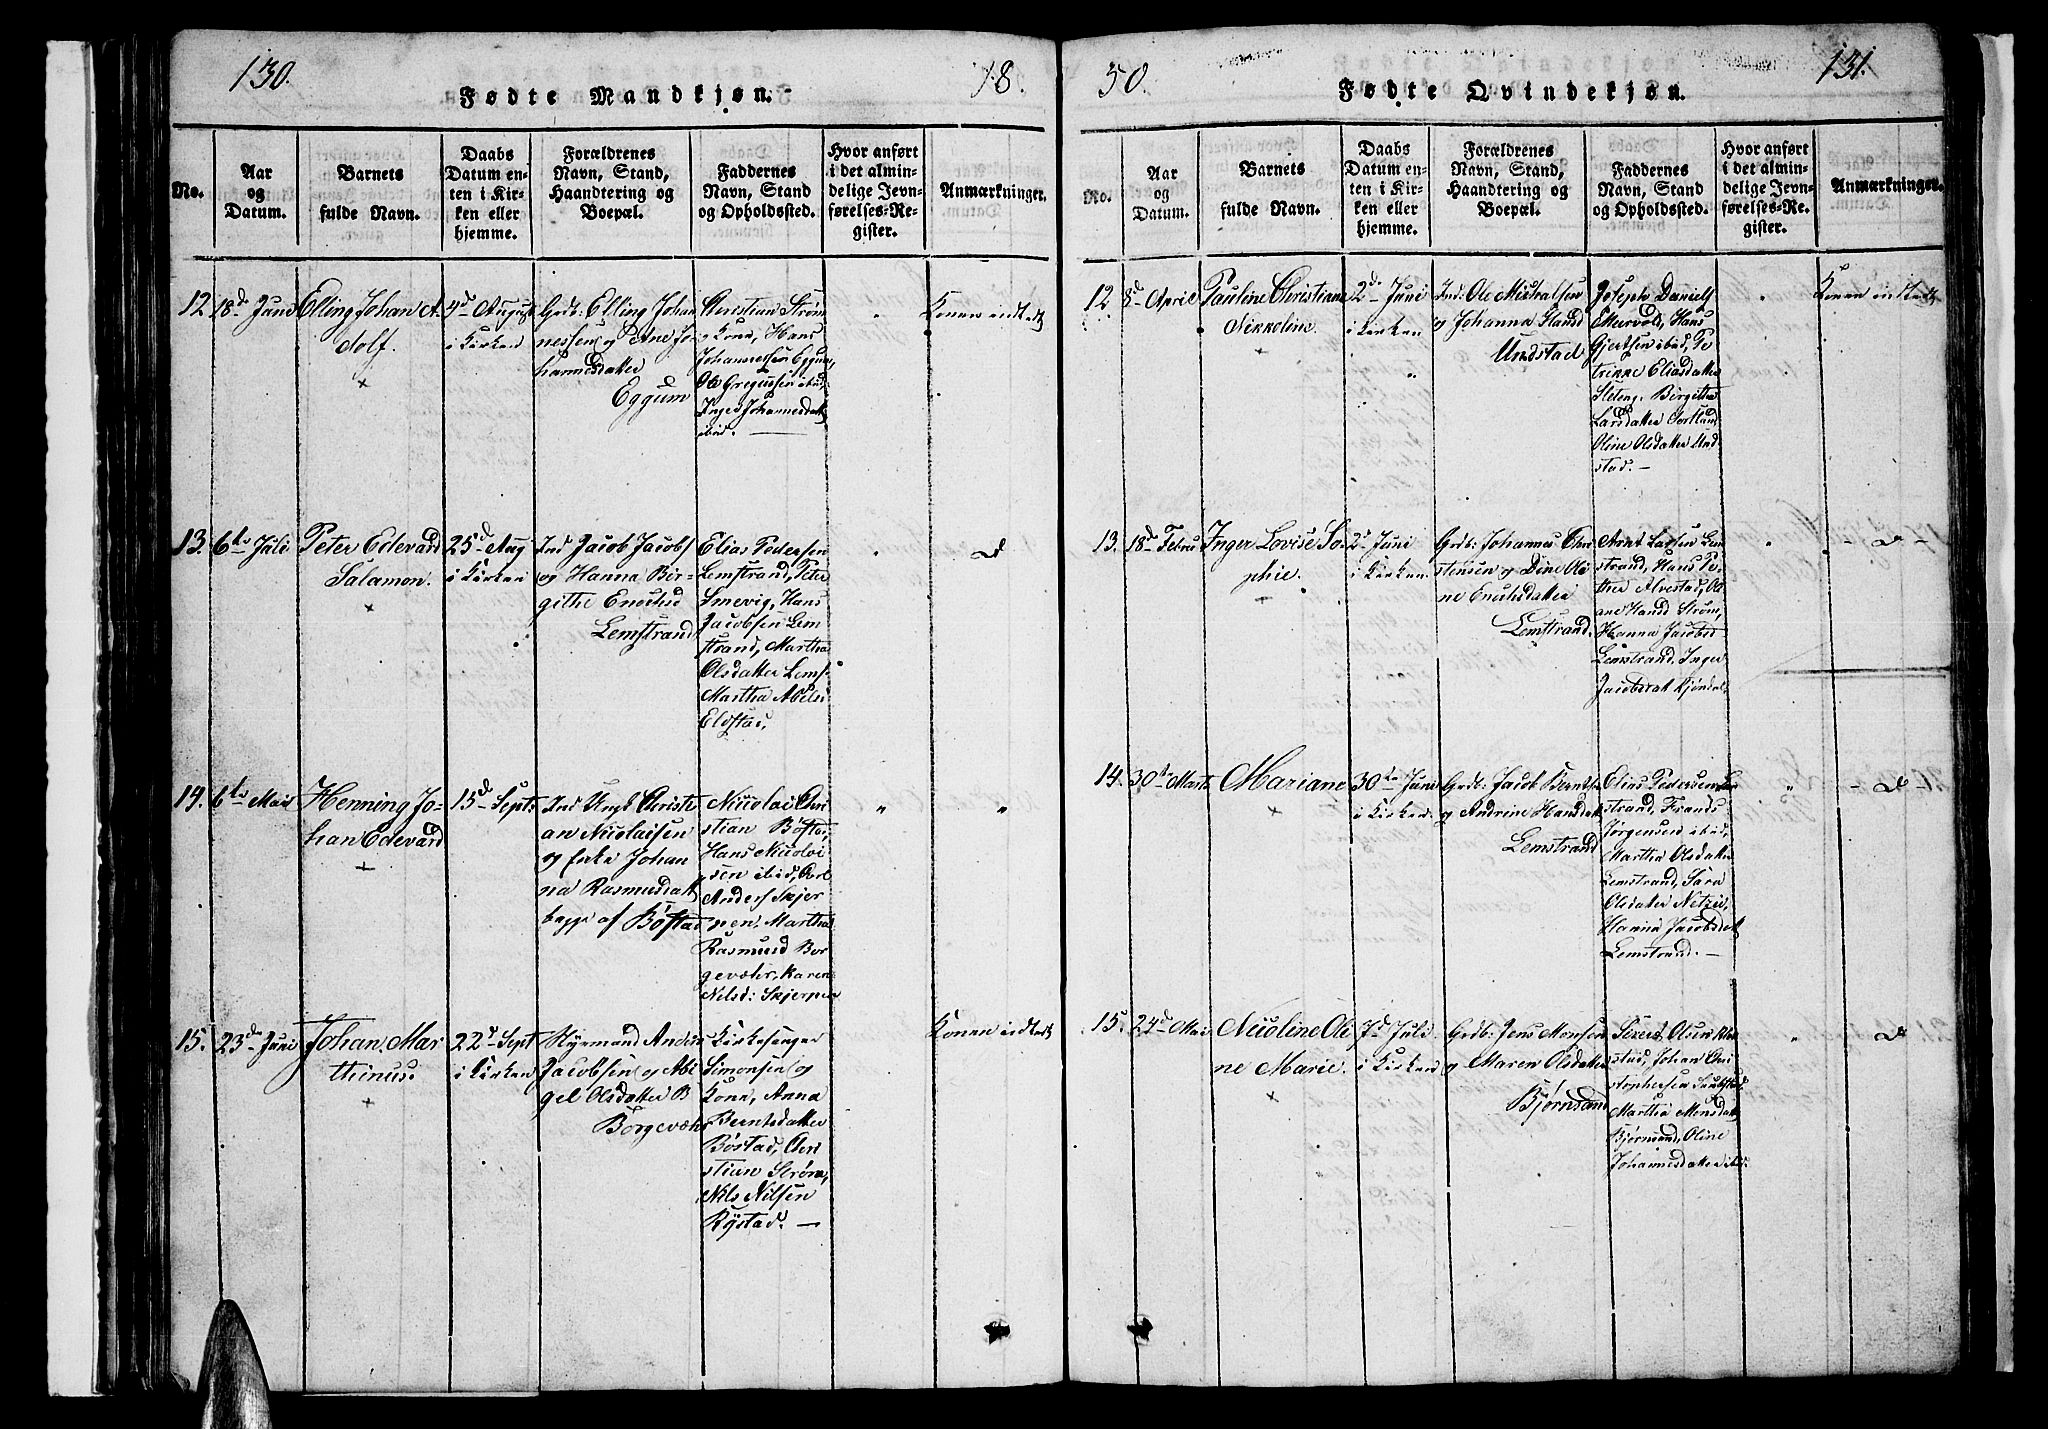 130.
18.
Fødte Mandkjøn.
No.
Aar
og
Datum.
Barnets
fulde Navn.
Daabs
Datum en-
ten i Kir-
ken eller
hjemme.
Forældrenes
Navn, Stand,
Haandtering og
Boepæl.
Faddernes
Navn, Stand
og Opholdssted.
Hvor anført
i det almin-
delige Jevn-
førelses-Re-
gister.
Anmærkninger.
12.
18d Juni
Elling Johan A-
dolf.
4d August
i Kirken
Grdb: Elling Johan
nessen og Ane Jo-
hannesdatter
Eggum
Christian Strøm
Kone, Hans
Johannessen Eggum,
Ole Gregussen ibid,
Inger Johannesdatt
ibid.
Konen indtedt
13.
6te Juli
Peter Edevard
Salamon.
25d Aug
i Kirken
Ind Jacob Jacobs
og Hanna Bir-
githe Enochsd
Lemstrand
Elias Pedersen
Lemstrand, Peter
Smevig, Hans
Jacobsen Lem
strand, Martha
Olsdatter Lemst
Martha Abelsd
Eldstad,
D
14.
6te Mai
Henning Jo-
han Edevard
15d Septb
Ind Ungk Christi
an Nicolaisen
og Johan
na Rasmusdatt
begge af Bøstad
Nicolai Chri
stian Bøstad,
Hans Nicolai
sen ibid, Carl
Anders Skjer
pen, Martha
Rasmusd Bor
gevær, Karen
Nilsd: Skjerpen
15.
23de Juni
Johan Mar
thinus.
22d Sept
i Kirken
Rÿemand Anders
Jacobsen og Abi
gel Olsdatter B
Borgevær
Kirkesanger
Simonsen og
Kone, Anna
Berntsdatter
Bøstad, Chri
stian Strøm,
Nils Nilsen
Rÿstad.
Konen indtedt
50.
131.
Fødte Qvindekjøn.
No.
Aar
og
Datum.
Barnets
fulde Navn.
Daabs
Datum en-
ten i Kir-
ken eller
hjemme.
Forældrenes
Navn, Stand,
Haandtering og
Boepæl.
Faddernes
Navn, Stand
og Opholdssted.
Hvor anført
i det almin-
delige Jevn-
førelses-Re-
gister.
Anmærkninger.
12
8d April
Pauline Christiane
Nikkoline.
2d Juni
i Kirken
Ind. Ole Mikkalsen
og Johanna Hansd
Undstad
Joseph Daniels
Mervold, Hans
Gjertsen ibid, Pe
trikke Eliasdatter
Steteng, Birgitha
Larsdatter Sortland
Oline Olsdatter Und
stad.
Konen indtedt
13.
18d Febru
Inger Lovise So-
phie.
2d Juni
i Kirken.
Grdb: Johannes Chri
stensen og Dine Ole
ne Enochsdatter
Lemstrand.
Arnt Larsen Lem
strand, Hans Pe-
tter Alvestad, Ol
ane Hansd Strøm,
Hanna Jacobsd
Lemstrand, Inger
Jacobsdat Kjøndal,
D
14.
30te Marts
Mariane
30te Juni
i Kirken
Grdb: Jacob Berntsen
og Andrine Hansdatt
Lemstrand
Elias Pedersen Lem
strand, Frands
Jørgensen ibid,
Martha Olsdatter
Lemstrand, Sara
Olsdatter Netzer,
Hanna Jacobsdat
Lemstrand.
D
15.
24d Mai
Nicoline Oli
ne Marie.
7d Juli
i Kirken
Grdb: Jens Monsen
og Maren Olsdatter
Bjørnsand
Sivert Olsen
stad, Johan Chri
stophersen Sandstad,
Martha Monsdatt
Bjørnsand, Oline
Johannesdatter ibid.
D